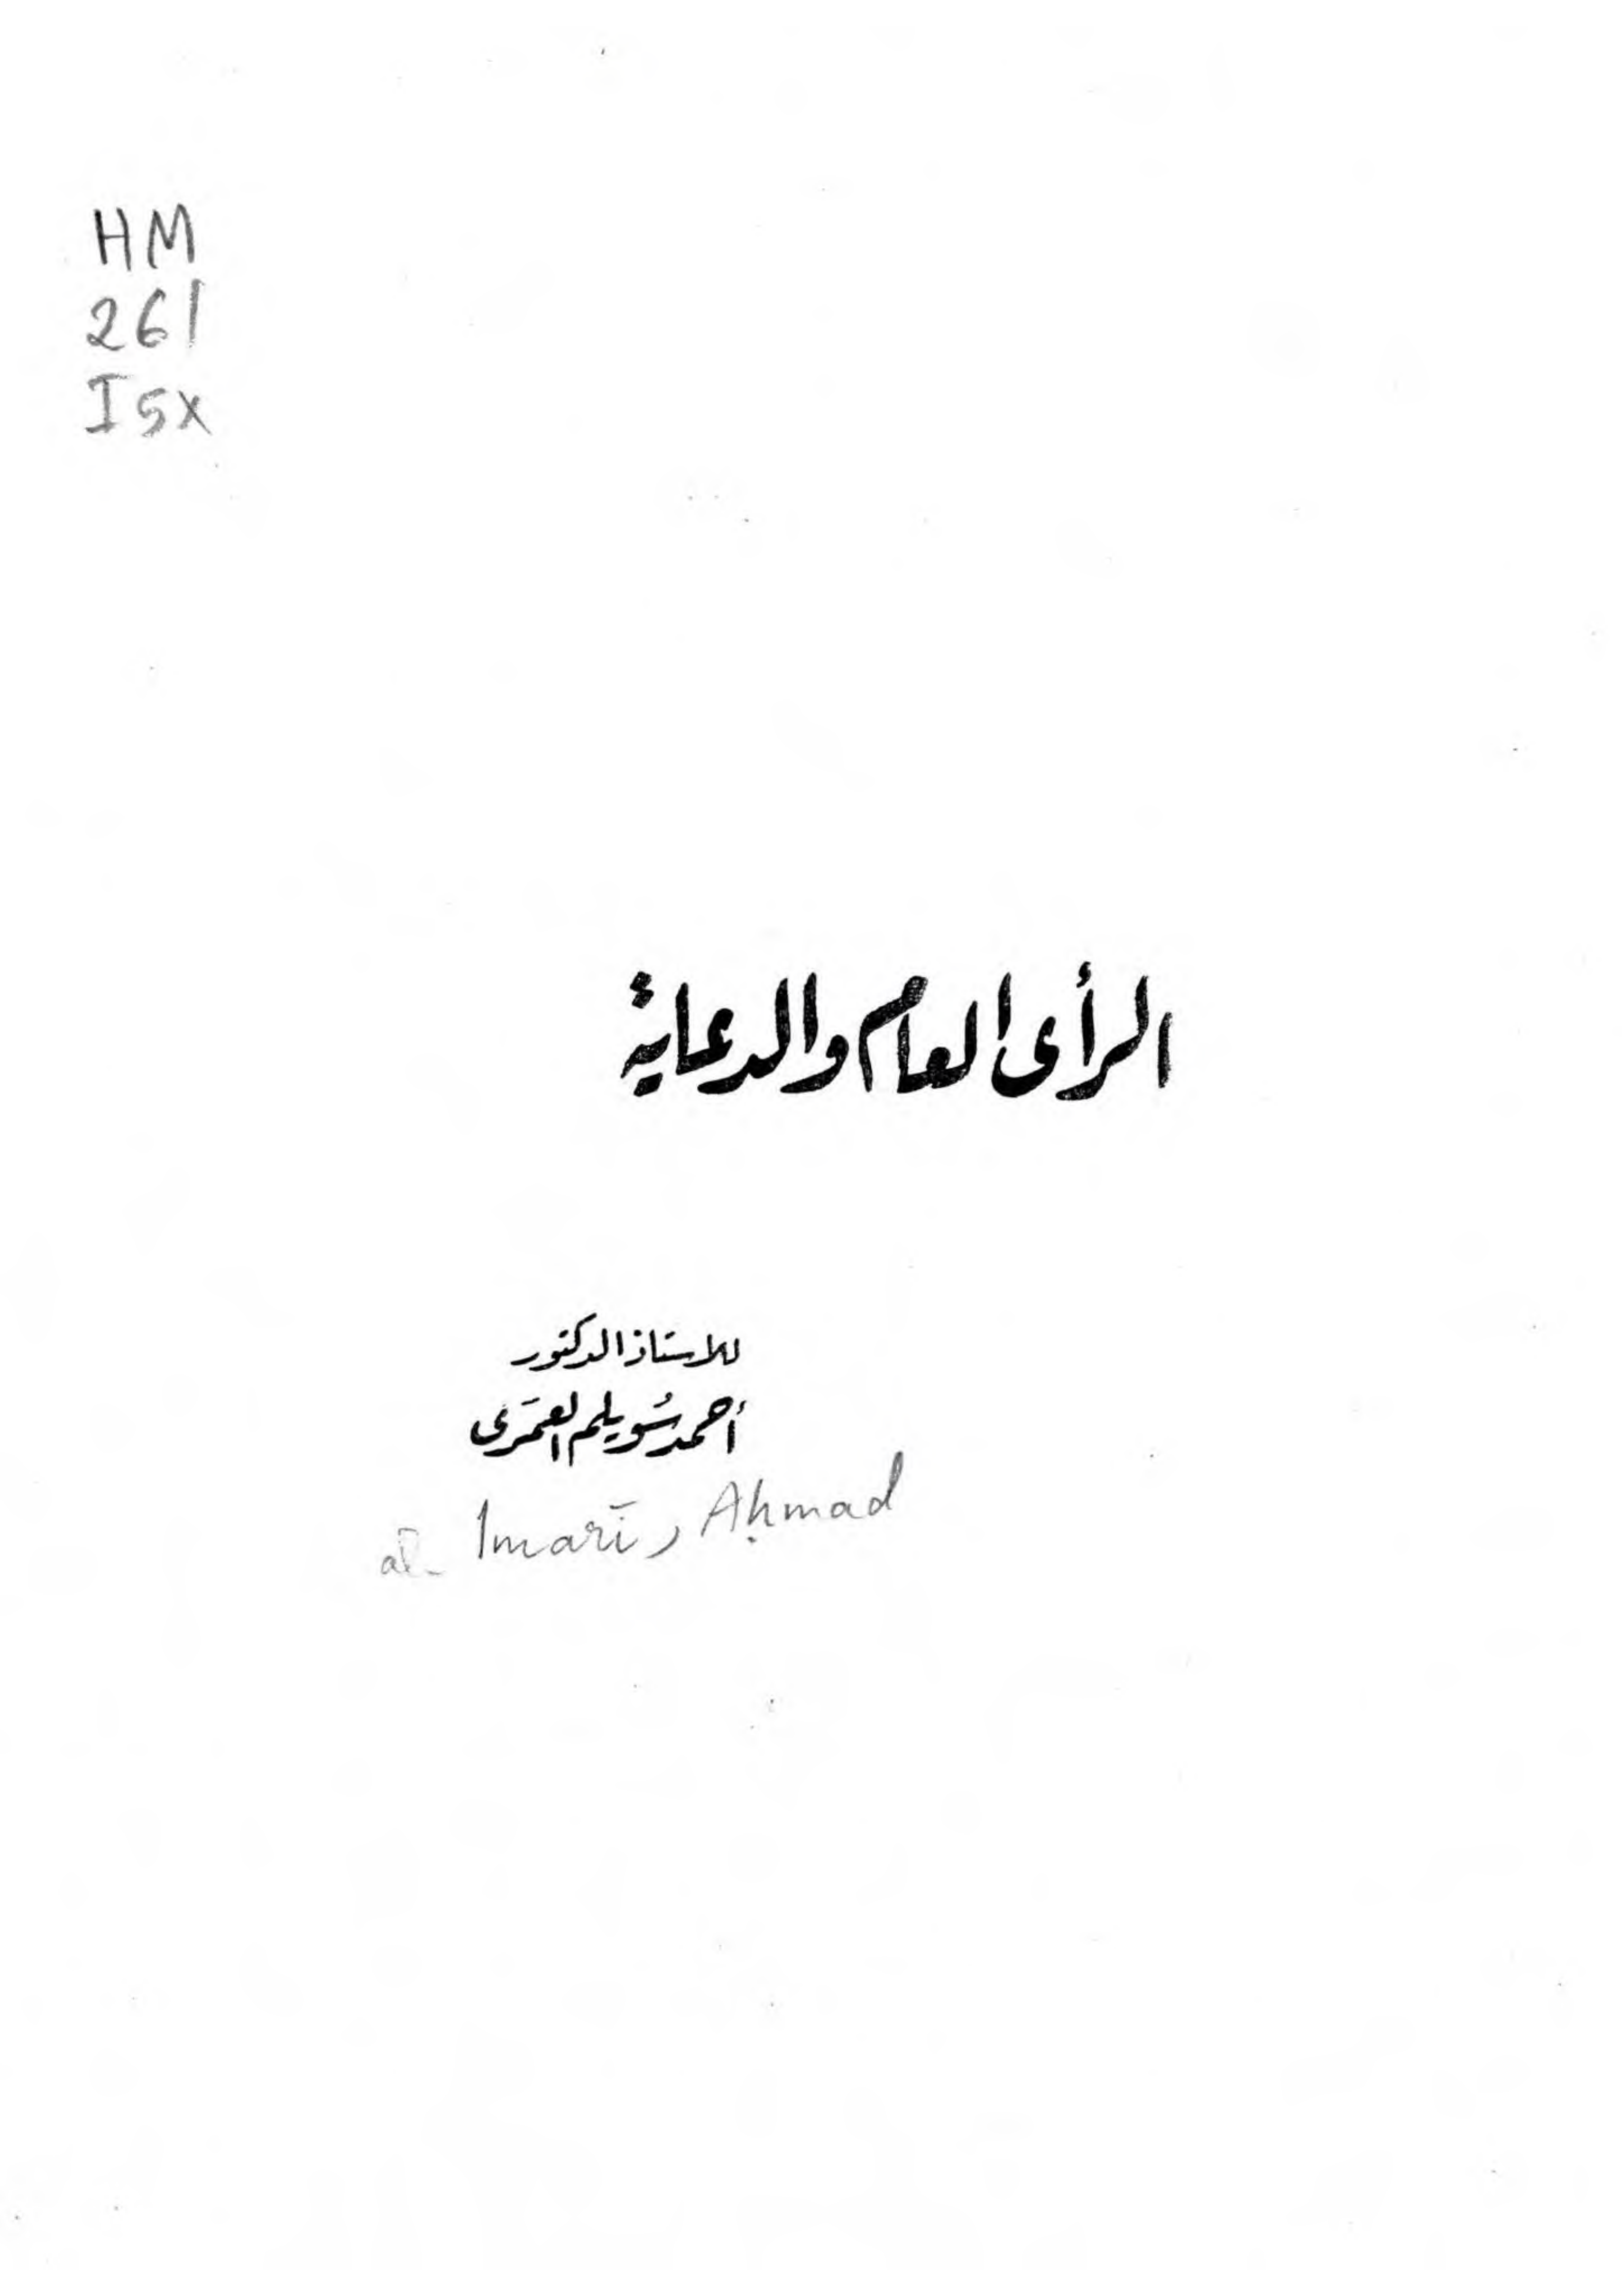 HM
261
I5X
الرأى العام والدعاية
للاستاذ الدكتور
أحمد سُويلم العمَرى
al- Imarī, Aḥmad